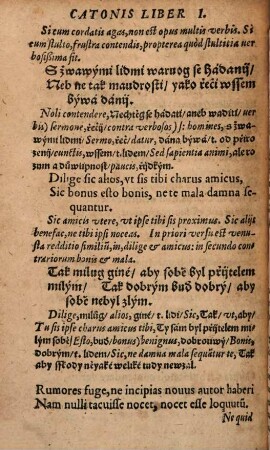 CATONIS LIBER I.
Si cum cordatis agas, non est opus multis verbis. Si
cum stulto, frustra contendis, propterea quòd stultitia ver
bosissima sit.
S žwawými lidmi warůog se hádanij/
Neb ne tak maudrosti / yako řeči wssem
býwá dánij.
Noli contendere, Nechtěg se hádati/ aneb waditi/ uer
bis) sermone, řečij/ contra verbosos) s: homines, s žwa
wými lidmi/ Sermo, řeč/ datur, dána býwá/ t. od při
zenij/ cunctis, wssem/ t. lidem/ Sed sapientia animi, ale ro
zum a důwtipnost/ paucis, řídkým.
Dilige sic alios, vt sis tibi charus amicus,
Sic bonus esto bonis, ne te mala damna se-
quantur.
Sic amicis vtere, vt ipse tibi sis proximus. Sic alijs
benefac, ne tibi ipsi noceas. In priori versu est venu-
sta redditio similiũ, in, dilige & amicus: in secundo con
trariorum bonis & mala.
Tak milůg giné/ aby sobě byl přijtelem
milým/ Tak dobrým buď dobrý/ aby
sobě nebyl zlým.
Dilige, milůg/ alios, giné/ t. lidi/ Sic, Tak/ vt, aby/
Tu sis ipse charus amicus tibi, Ty sám byl přijtelem mi-
lým sobě/ Esto, buď/ bonus) benignus, dobrotiwý/ Bonis,
dobrým/ t. lidem/ Sic, ne damna mala sequãtur te, Tak
aby sskody nějaké weliké tudy newzal.
Rumores fuge, ne incipias nouus autor haberi
Nam nulli tacuisse nocet, nocet esse loquutũ.
Ne quid